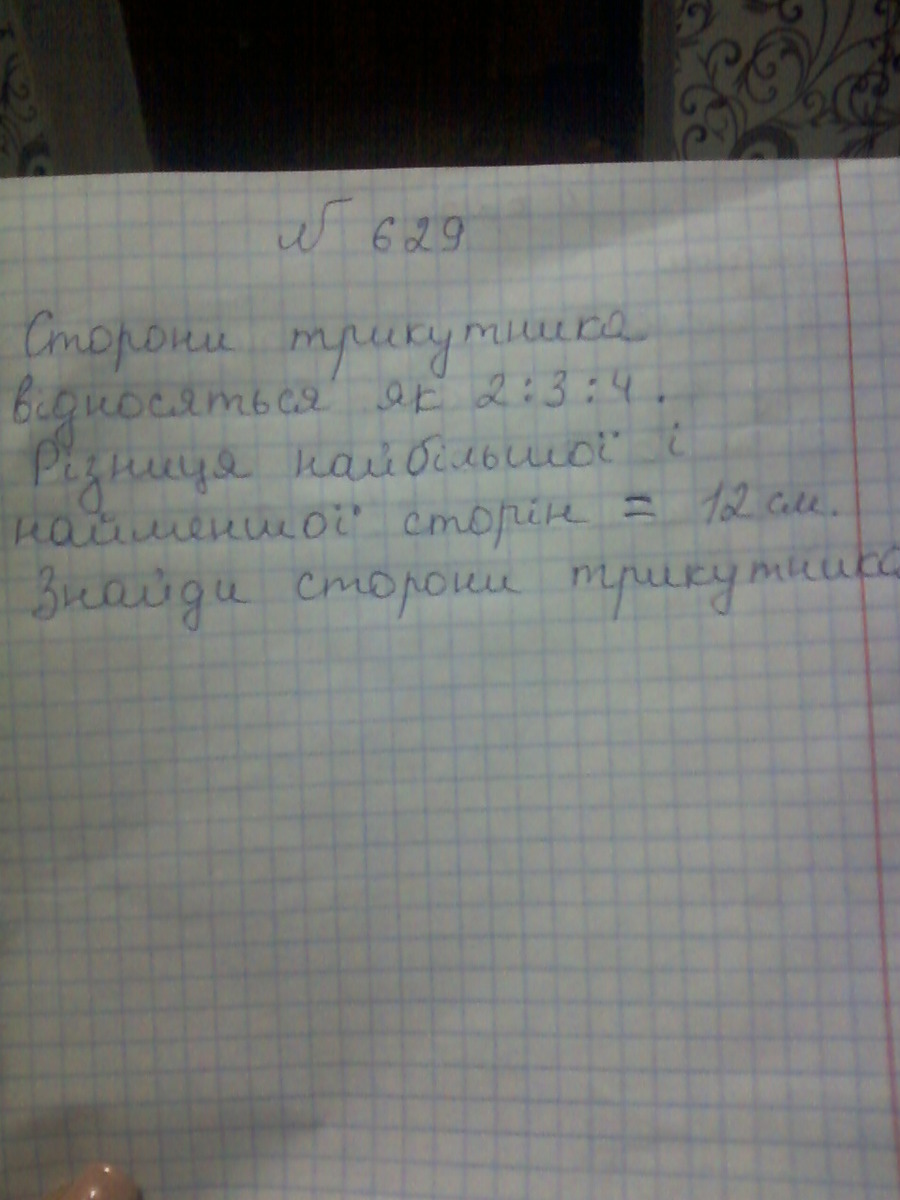 № 629
Сторони трикутника
відносяться як 2:3:4.
Різниця найбільшої і
найменшої сторін = 12 см.
Знайди сторони трикутника